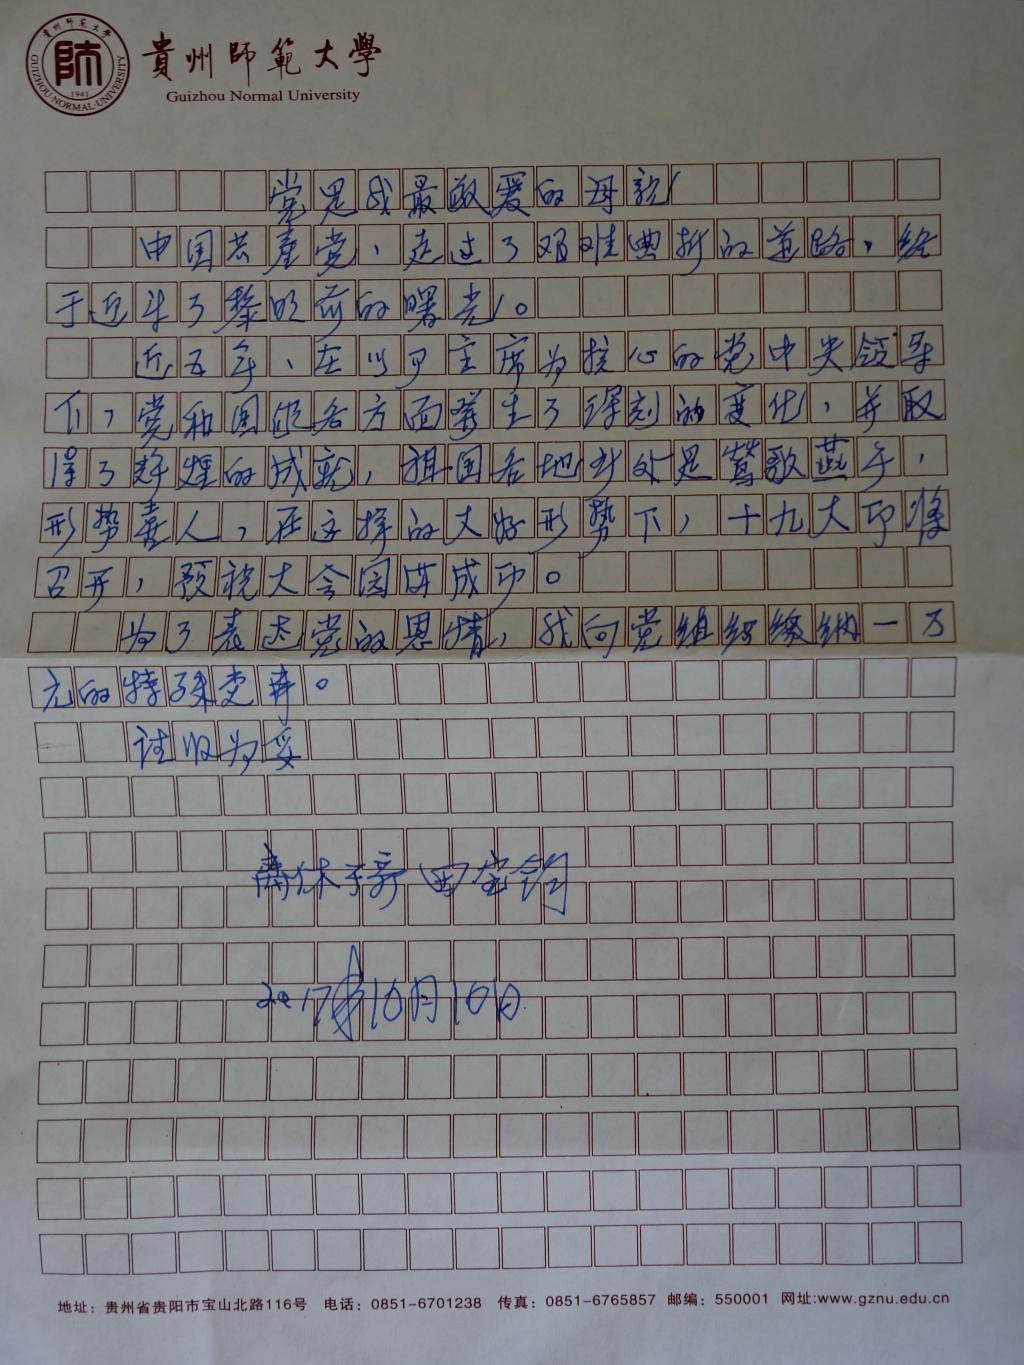 貴州師範大學
Guizhou Normal University
貴州師范大學
師
1941
GUIZHOU·NORMAL·UNIVERSITY
党是我最敬爱的母亲
中国共産党，走过了艰难曲折的道路，终
于迎来了黎明前的曙光。
近五年，在以习主席为核心的党中央领导
下，党和国家各方面发生了深刻的变化，并取
得了辉煌的成就，祖国各地到处是莺歌燕午，
形势喜人，在这样的大好形势下，十九大即将
召开，预祝大会圆满成功。
为了表达党的恩情，我向党组织缴纳一万
元的特殊党费。
请收为妥
离休 田宝
2017年10月16日
地址：贵州省贵阳市宝山北路116号 电话：0851-6701238 传真：0851-6765857 邮编：550001 网址:www.gznu.edu.cn